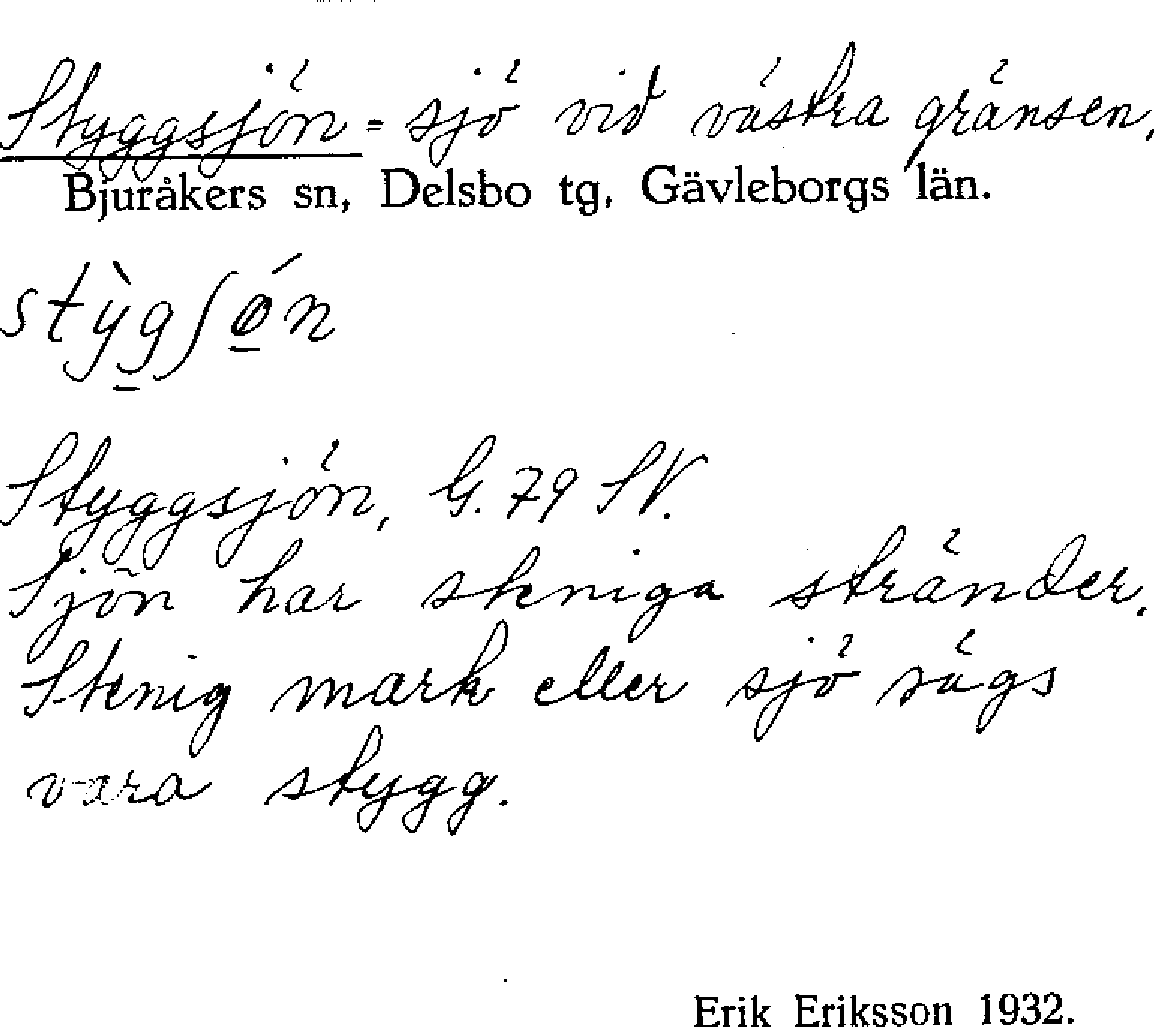 Styggsjön = sjö vid västra gränsen.
Bjuråkers sn, Delsbo tg, Gävleborgs län.
stỳgʃǿn
Styggsjön, G. 79 SV.
Sjön har steniga stränder.
Stenig mark eller sjö sägs
vara stygg.
Erik Eriksson 1932.